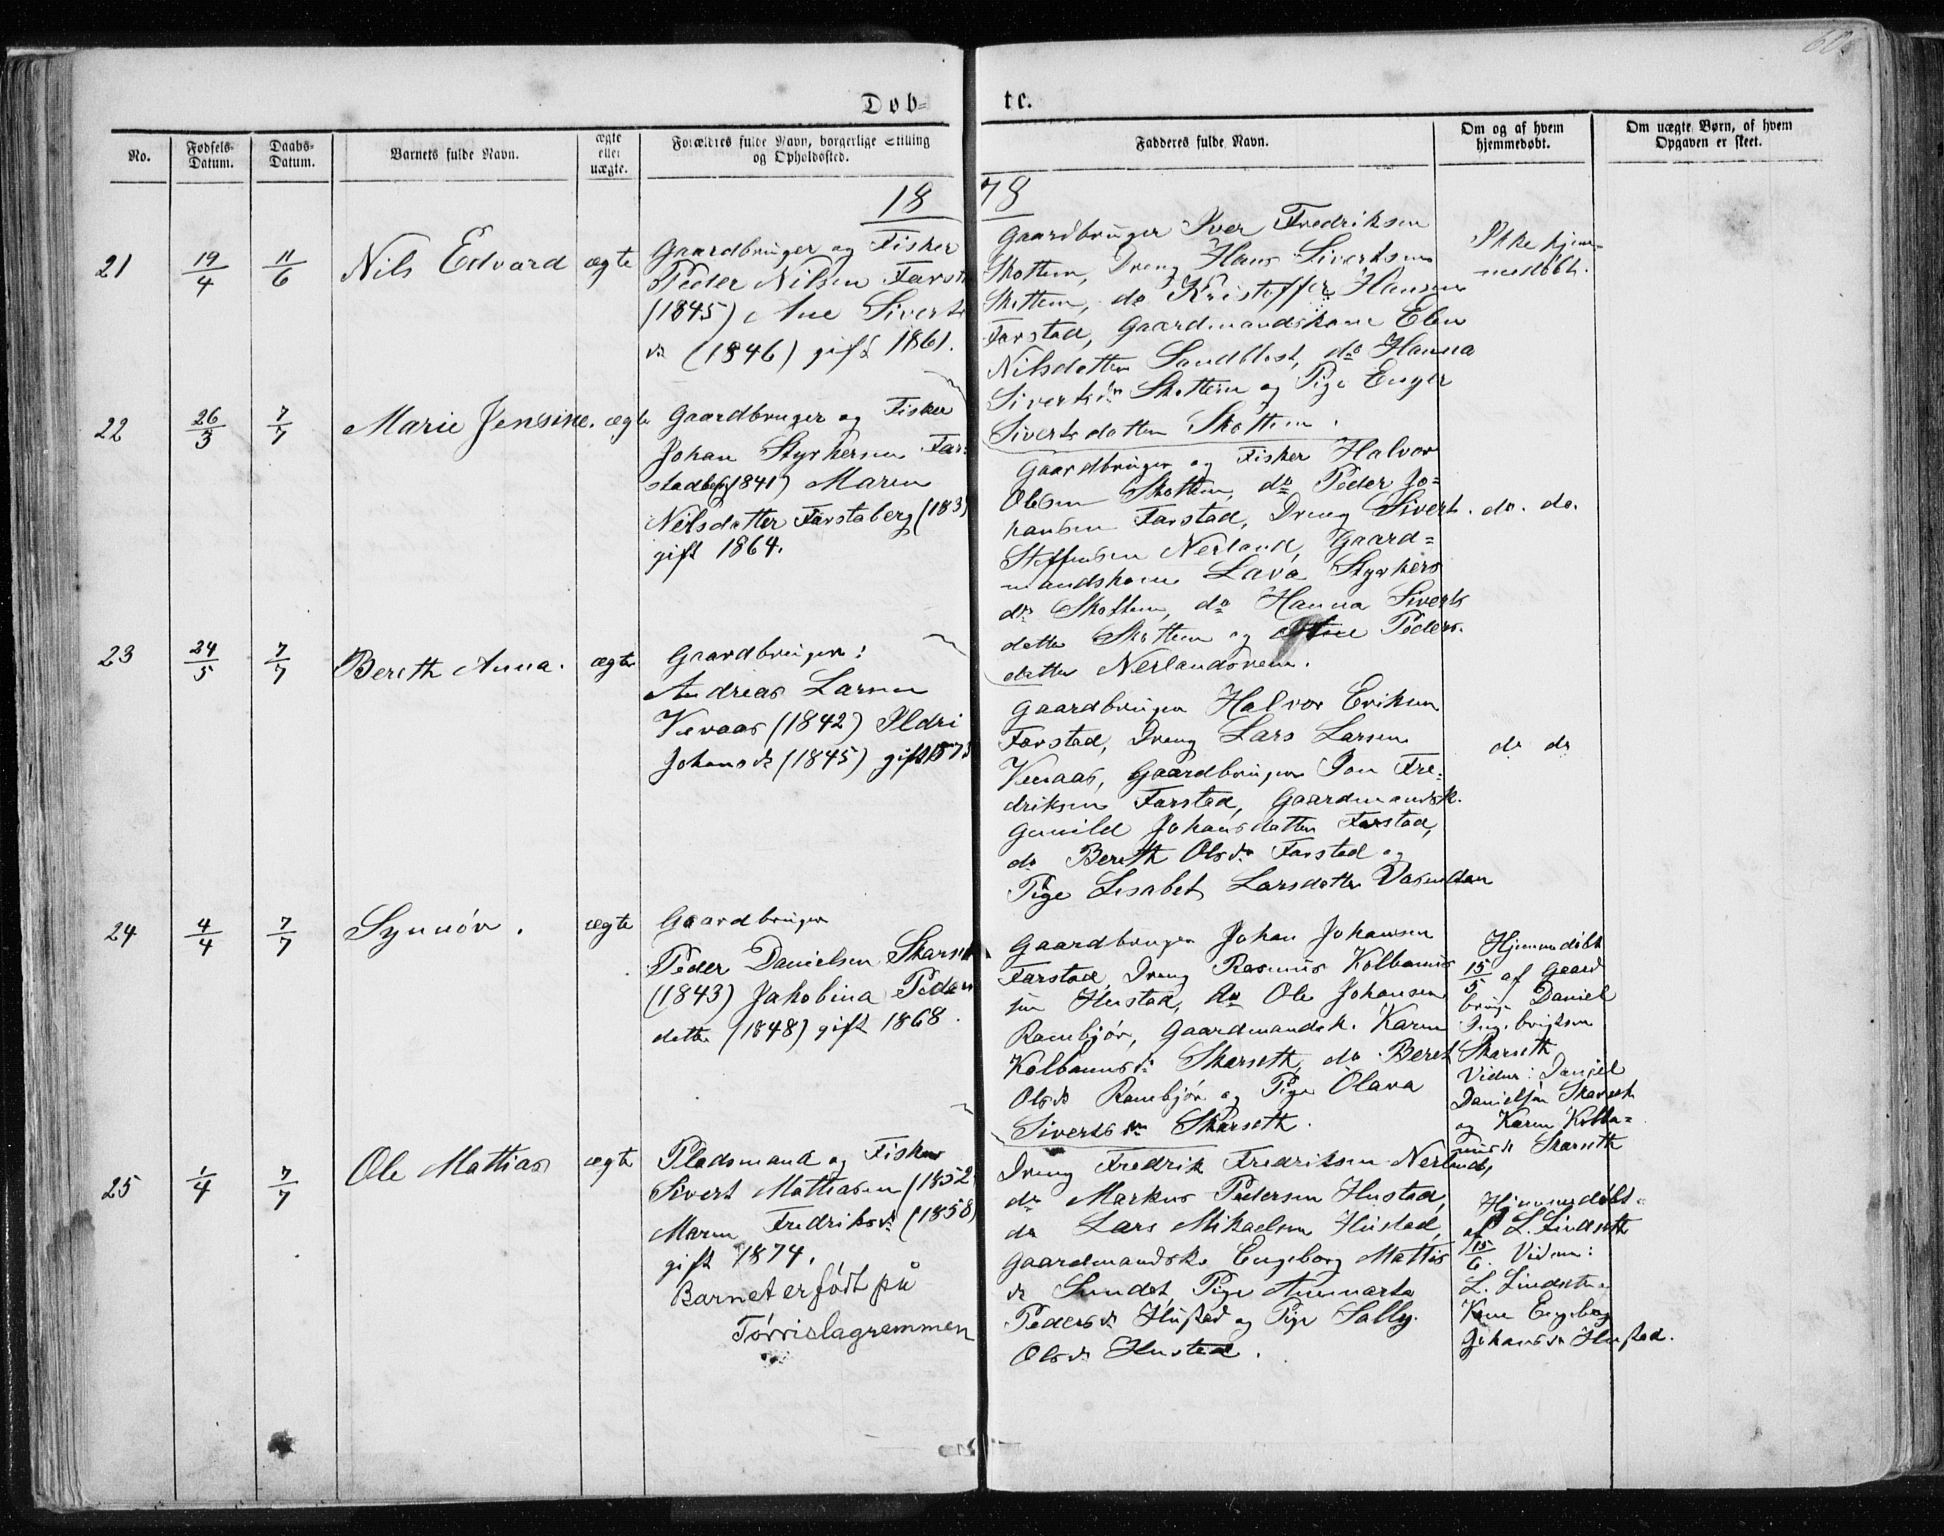 60.
Døb-
te.
No.
Fødsels-
Datum.
Daabs-
Datum.
Barnets fulde Navn.
ægte
eller
uægte.
Forældres fulde Navn, borgerlige Stilling
og Opholdssted.
Fadderes fulde Navn.
Om og af hvem
hjemmedøbt.
Om uægte Børn, af hvem
Opgaven er skeet.
18
78
21
19/4
11/6
Nils Edvard
ægte
Gaardbruger og Fisker
Peder Nilsen Farst
(1845) Ane Siverts
dr (1846) gift 1861.
Gaardbruger Iver Fredriksen
Skottem, Dreng Hans Sivertsen
Skottem, do Kristoffer Hansen
Farstad, Gaardmandskone Elen
Nilsdatter Sandblost, do Hanna
Sivertsdr Skottem og Pige Enger
Sivertsdatter Skottem.
Ikke hjem-
medøbt.
22
26/3
7/7
Marie Jensine.
ægte
Gaardbruger og Fisker
Johan Styrkersen Far-
stadberg (1841) Maren
Nilsdatter Farstaberg (183
gift 1864.
Gaardbruger og Fisker Halvor
Olesen Skottem, do Peder Jo-
hansen Farstad, Dreng Sivert
Steffensen Nerland, Gaard-
mandskone Lava Styrkers
dr Skottem, do Hanna Siverts
datter Skottem og Ane Peders-
datter Nerlandsrem.
do. do.
23
24/5
7/7
Bereth Anna.
ægte
Gaardbruger:
Andreas Larsen
Vevaas (1842) Ildri
Johansdr (1845) gift 187
Gaardbruger Halvor Eriksen
Farstad, Dreng Lars Larsen
Vevaas, Gaardbruger Jon Fre-
driksen Farstad, Gaardmandsk.
Gunild Johansdatter Farstad,
do Bereth Olsdr Farstad og
Pige Lisabet Larsdatter
do do
24
4/4
7/7
Synnøv.
ægte
Gaardbruger
Peder Danielsen Skarset
(1843) Jakobina Peders
datter (1848) gift 1868.
Gaardbruger Johan Johansen
Farstad, Dreng Rasmus Kolbanus
sen Hustad, do Ole Johansen
Rambjør, Gaardmandsk. Karen
Kolbanusdr Skarseth, do Beret
Olsdr Rambjør og Pige Olava
Sivertsdr Skarseth.
Hjemmedøbt
15/5 af Gaard
bruger Daniel
Ingebrigtsen
Skarseth
Vidner: Daniel
Danielsen Skarseth
og Karen Kolba-
nusdr Skarseth
25
1/4
7/7
Ole Mathias
ægte
Pladsmand og Fisker
Sivert Mathiasen (1852
Maren Fredriksdr (1858)
gift 1874.
Barnet er født på
Tørrislagremmen
Dreng Fredrik Fredriksen Nerland,
do Markus Pedersen Hustad,
do Lars Mikaelsen Hustad,
Gaardmandsk. Engeborg Mattis
dr Sundet, Pige Annmarta
Pedersdr Hustad og Pige Sally
Olsdr Hustad.
Hjemmedøbt
af L. Lindseth
15/6. Vidner:
L. Lindseth
Kone Engeborg
Johansdr Hustad.